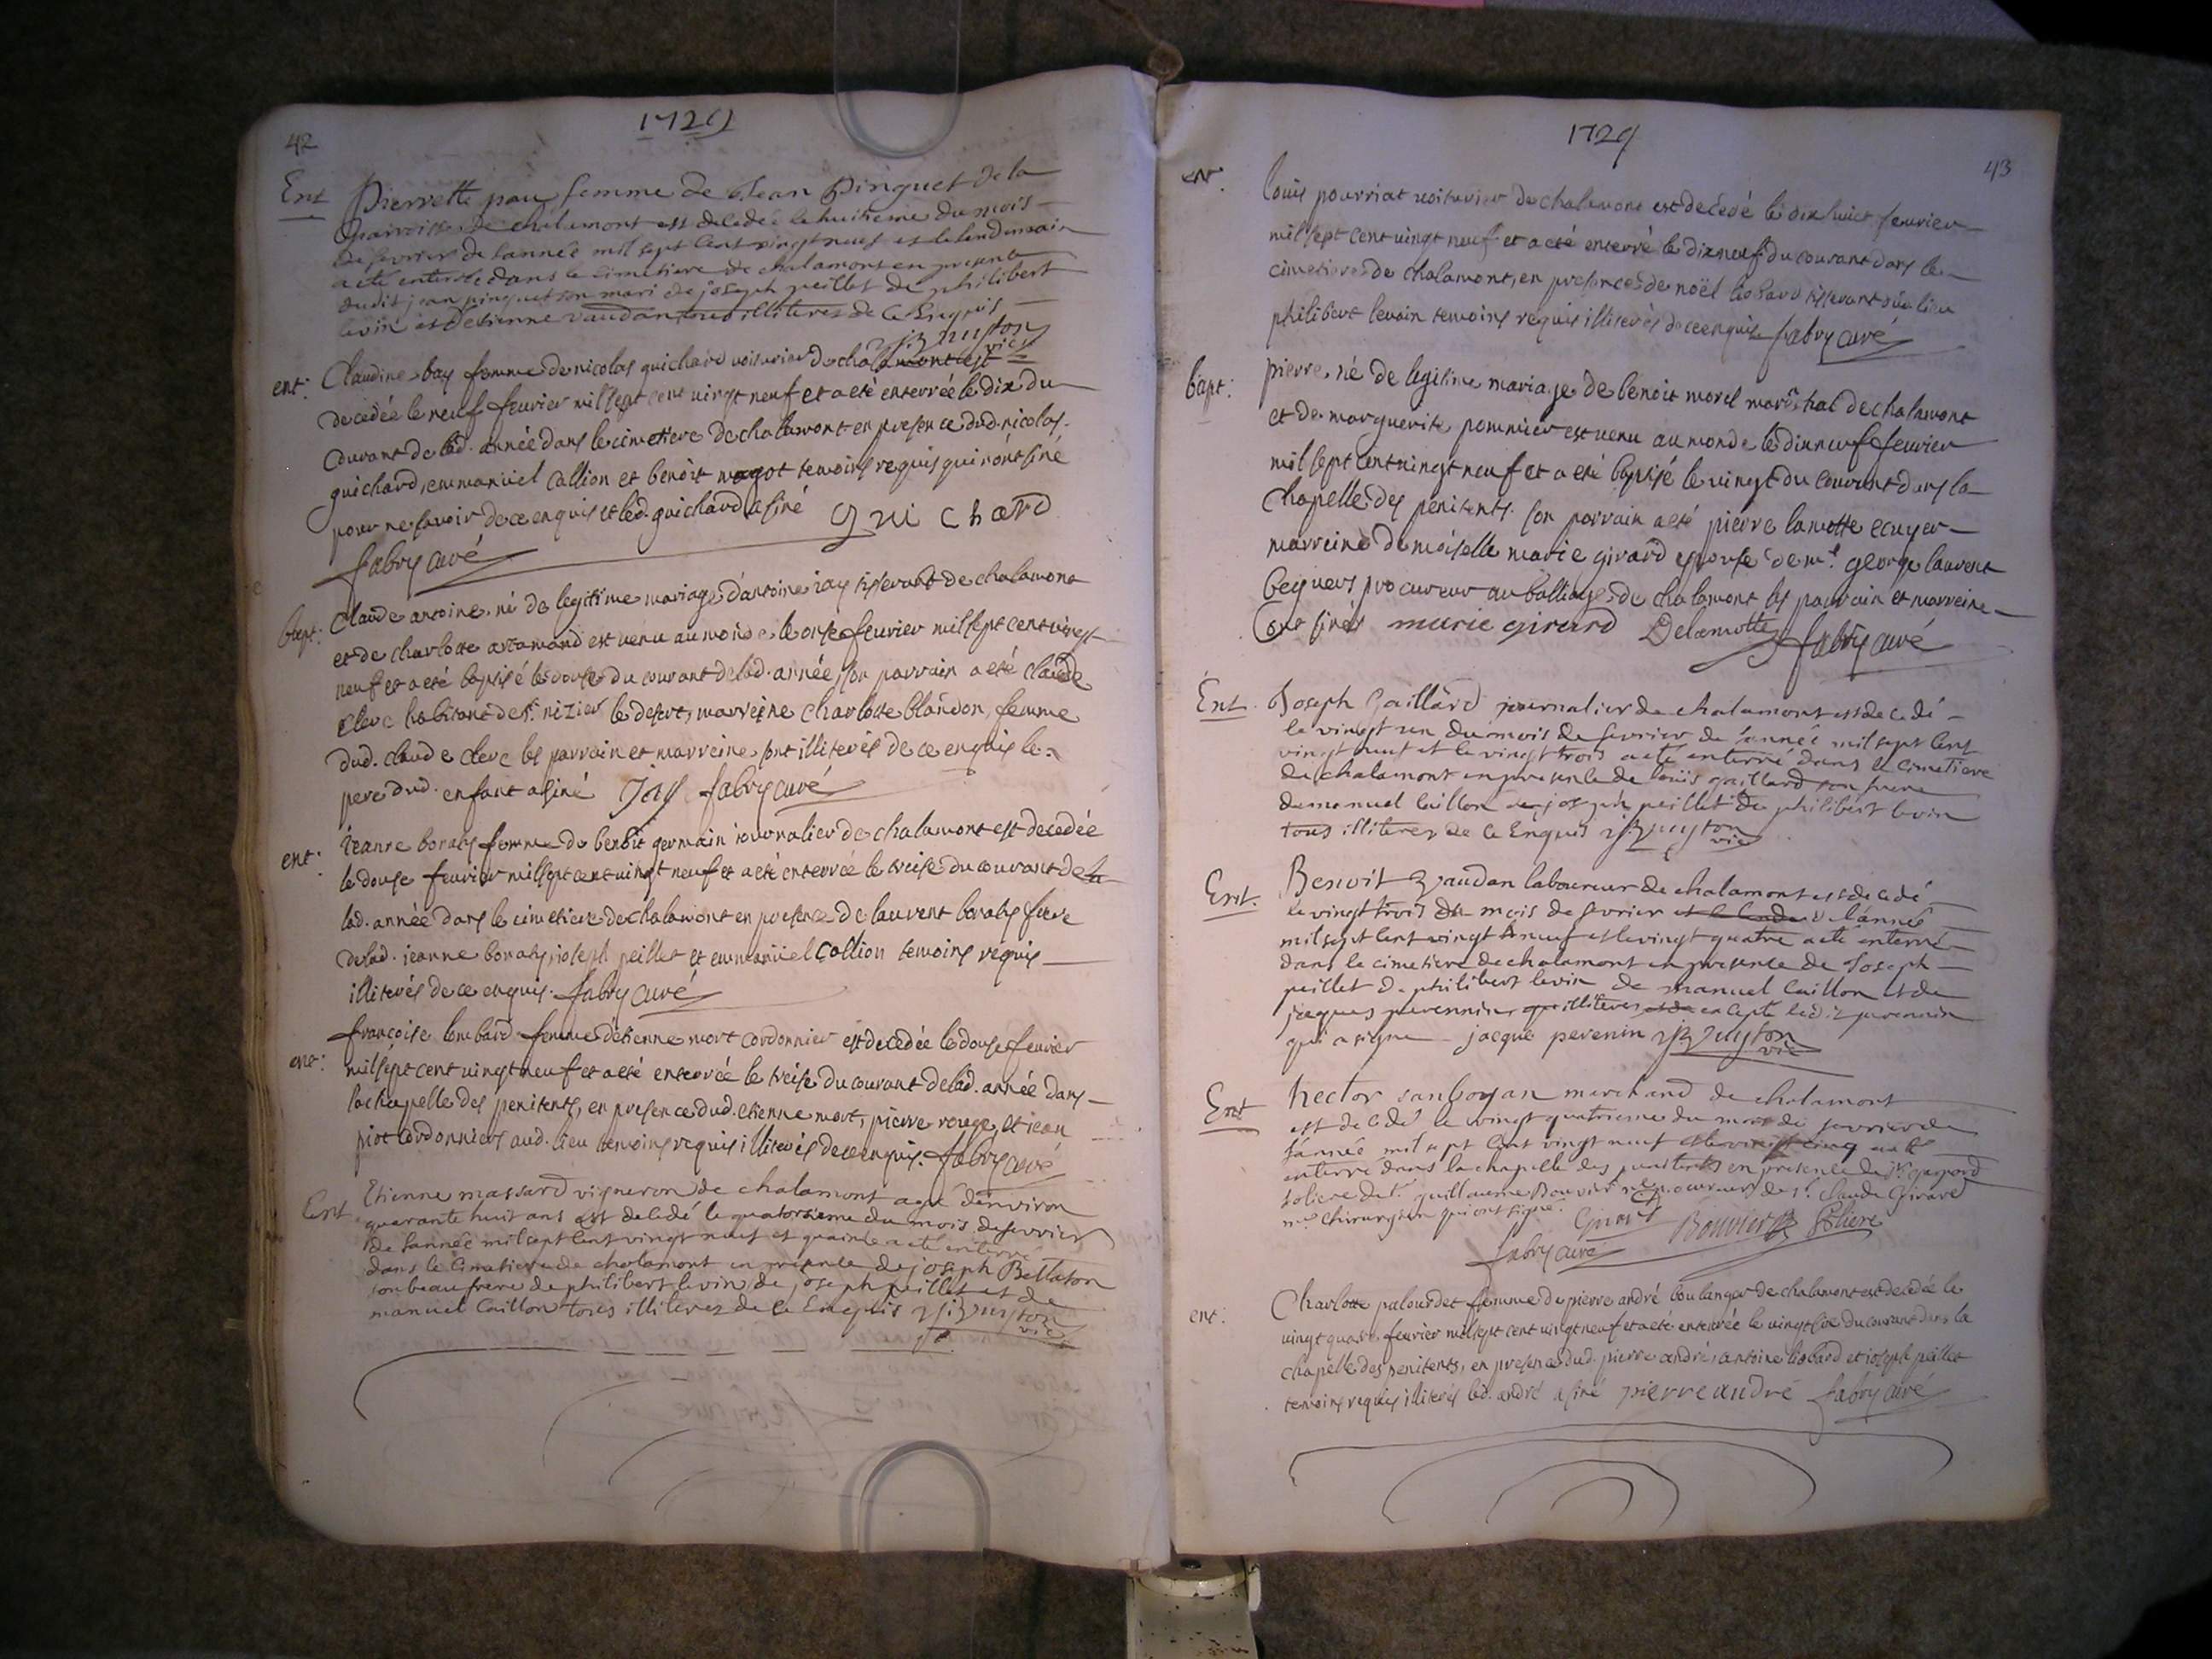 42
1729
Ent Pierrette pau femme de Jean Pinguet de la
parroisse de chalamont est decedeé le huitieme du mois
de fevrier de l'anneé mil sept cent vingt neuf et le lendemain
a eté enterreé dans le cimetiere de chalamont en presence
dudit jean pinguet son mari de joseph peillet de philibert
levin et d'etienne vaudan tous illiteres de ce Enquis
vic
ent: Claudine bay femme de nicolas guichard voiturier de chalamont est
decedée le neuf feuvrier mil sept cent uingt neuf et a eté enterrée le dix du
courant de lad. année dans le cimetiere de chalamont en presence dud. nicolas
guichard, emmanüel Callion et benoit magot temoins requis qui n'ont siné
pour ne savoir de ce enquis et led. guichard a siné guichard
fabry curé
bapt: Claude antoine né de legitime mariage d'antoine jay tisserant de chalamont
et de charlotte artamand est uenu au monde le onse feuvrier mil sept cent uingt
neuf et a eté baptisé le douse du courant de lad. année, son parrain a eté claude
clerc habitant de st. nizier le desert, marreine charlotte blandon, femme
dud. claude clerc les parrain et marreine sont illiterés de ce enquis le
pere dud. enfant a siné Jay fabry curé
ent: jeanne bonaty femme de benoit germain journalier de chalamont est decedée
le douse feuvrier mil sept cent uingt neuf et a eté enterrée le treise du courant de la
lad. année dans le cimetiere de chalamont en presence de laurent bonaty frere
de lad. jeanne bonaty, joseph peillet et emmanüel Callion temoins requis
illiterés de ce enquis. fabry curé
ent: françoise lombard femme d'etienne mort cordonnier est decedée le douse feuvrier
mil sept cent uingt neuf et a eté enterrée le treise du courant de lad. année dans
la chapelle des penitents, en presence dud. etienne mort, pierre rouge, et jean
piot cordonniers aud. lieu temoins requis illiterés de ce enquis. fabry curé
Ent Etienne massard vigneron de chalamont agé d'environ
quarante huit ans est decedé le quatorzieme du mois de fevrier
de l'anneé mil sept cent vingt neuf et quainze a eté enterré
dans le Cimetiere de chalamont en presence de joseph Bellaton
son beaufrere de philibert levin de joseph peillet et de
manuel Caillon tous illiterez de ce Enquis
vic
1729
43
ent: louis pourriat uoiturier de chalamont est decedé le dix huict feuvrier
mil sept cent uingt neuf et a eté enterré le dix neuf du courant dans le
cimetiere de chalamont, en presence de noël liobard tisserant dud. lieu
philibert levain temoins requis illiterés de ce enquis fabry curé
bapt: pierre, né de legitime mariage de benoit morel marêchal de chalamont
et de marguerite pommier est uenu au monde le dix neuf feuvrier
mil sept cent uingt neuf et a eté baptisé le uingt du courant dans la
chapelle des penitents. son parrain a eté pierre lamotte ecuyer
marreine demoiselle marie girard epouse de mr. george laurent
bequers procureur au balliage de chalamont les parrain et marreine
ont sinés marie girard Delamotte fabry curé
Ent. Joseph Gaillard journalier de chalamont est decedé
le vingt un du mois de fevrier de l'anneé mil sept cent
vingt neuf et le vingt trois a eté enterré dans le Cimetiere
de chalamont en presence de loüis gaillard son frere
demanuel Caillon de joseph peillet de philibert levin
tous illiteres de ce Enquis
vic
Ent. Benoit Vaudan laboureur de chalamont est decedé
le vingt trois du mois de fevrier et le lende de l'anneé
mil sept cent vingt neuf et le vingt quatre a eté enterré
dans le cimetiere de chalamont en presence de Joseph
peillet de philibert levin de manuel Caillon et de
jacques perennin illiteres excepté ledit perennin
qui a signé jacque perenin
vic
Ent hector sanboyan marchand de chalamont
est decedé le vingt quatrieme du mois de fevrier de
l'anneé mil sept cent vingt neuf et le vingt cinq a eté
enterré dans la chapelle des penitents en presence de sr. gaspard
soliere de sr. guillaume Bouvier procureur de sr. Claude Girard
me. Chirurgien qui ont signé. Girard Bouvier Soliere
fabry curé
ent: Charlotte palourdet femme de pierre andré boulanger de chalamont est decedée le
uingt quatre feuvrier mil sept cent uingt neuf et a eté enterrée le uingt six du courant dans la
chapelle des penitents, en presence dud. pierre andré, antoine liobard et joseph peillet
temoins requis illiterés led. andré a siné pierre andré fabry curé